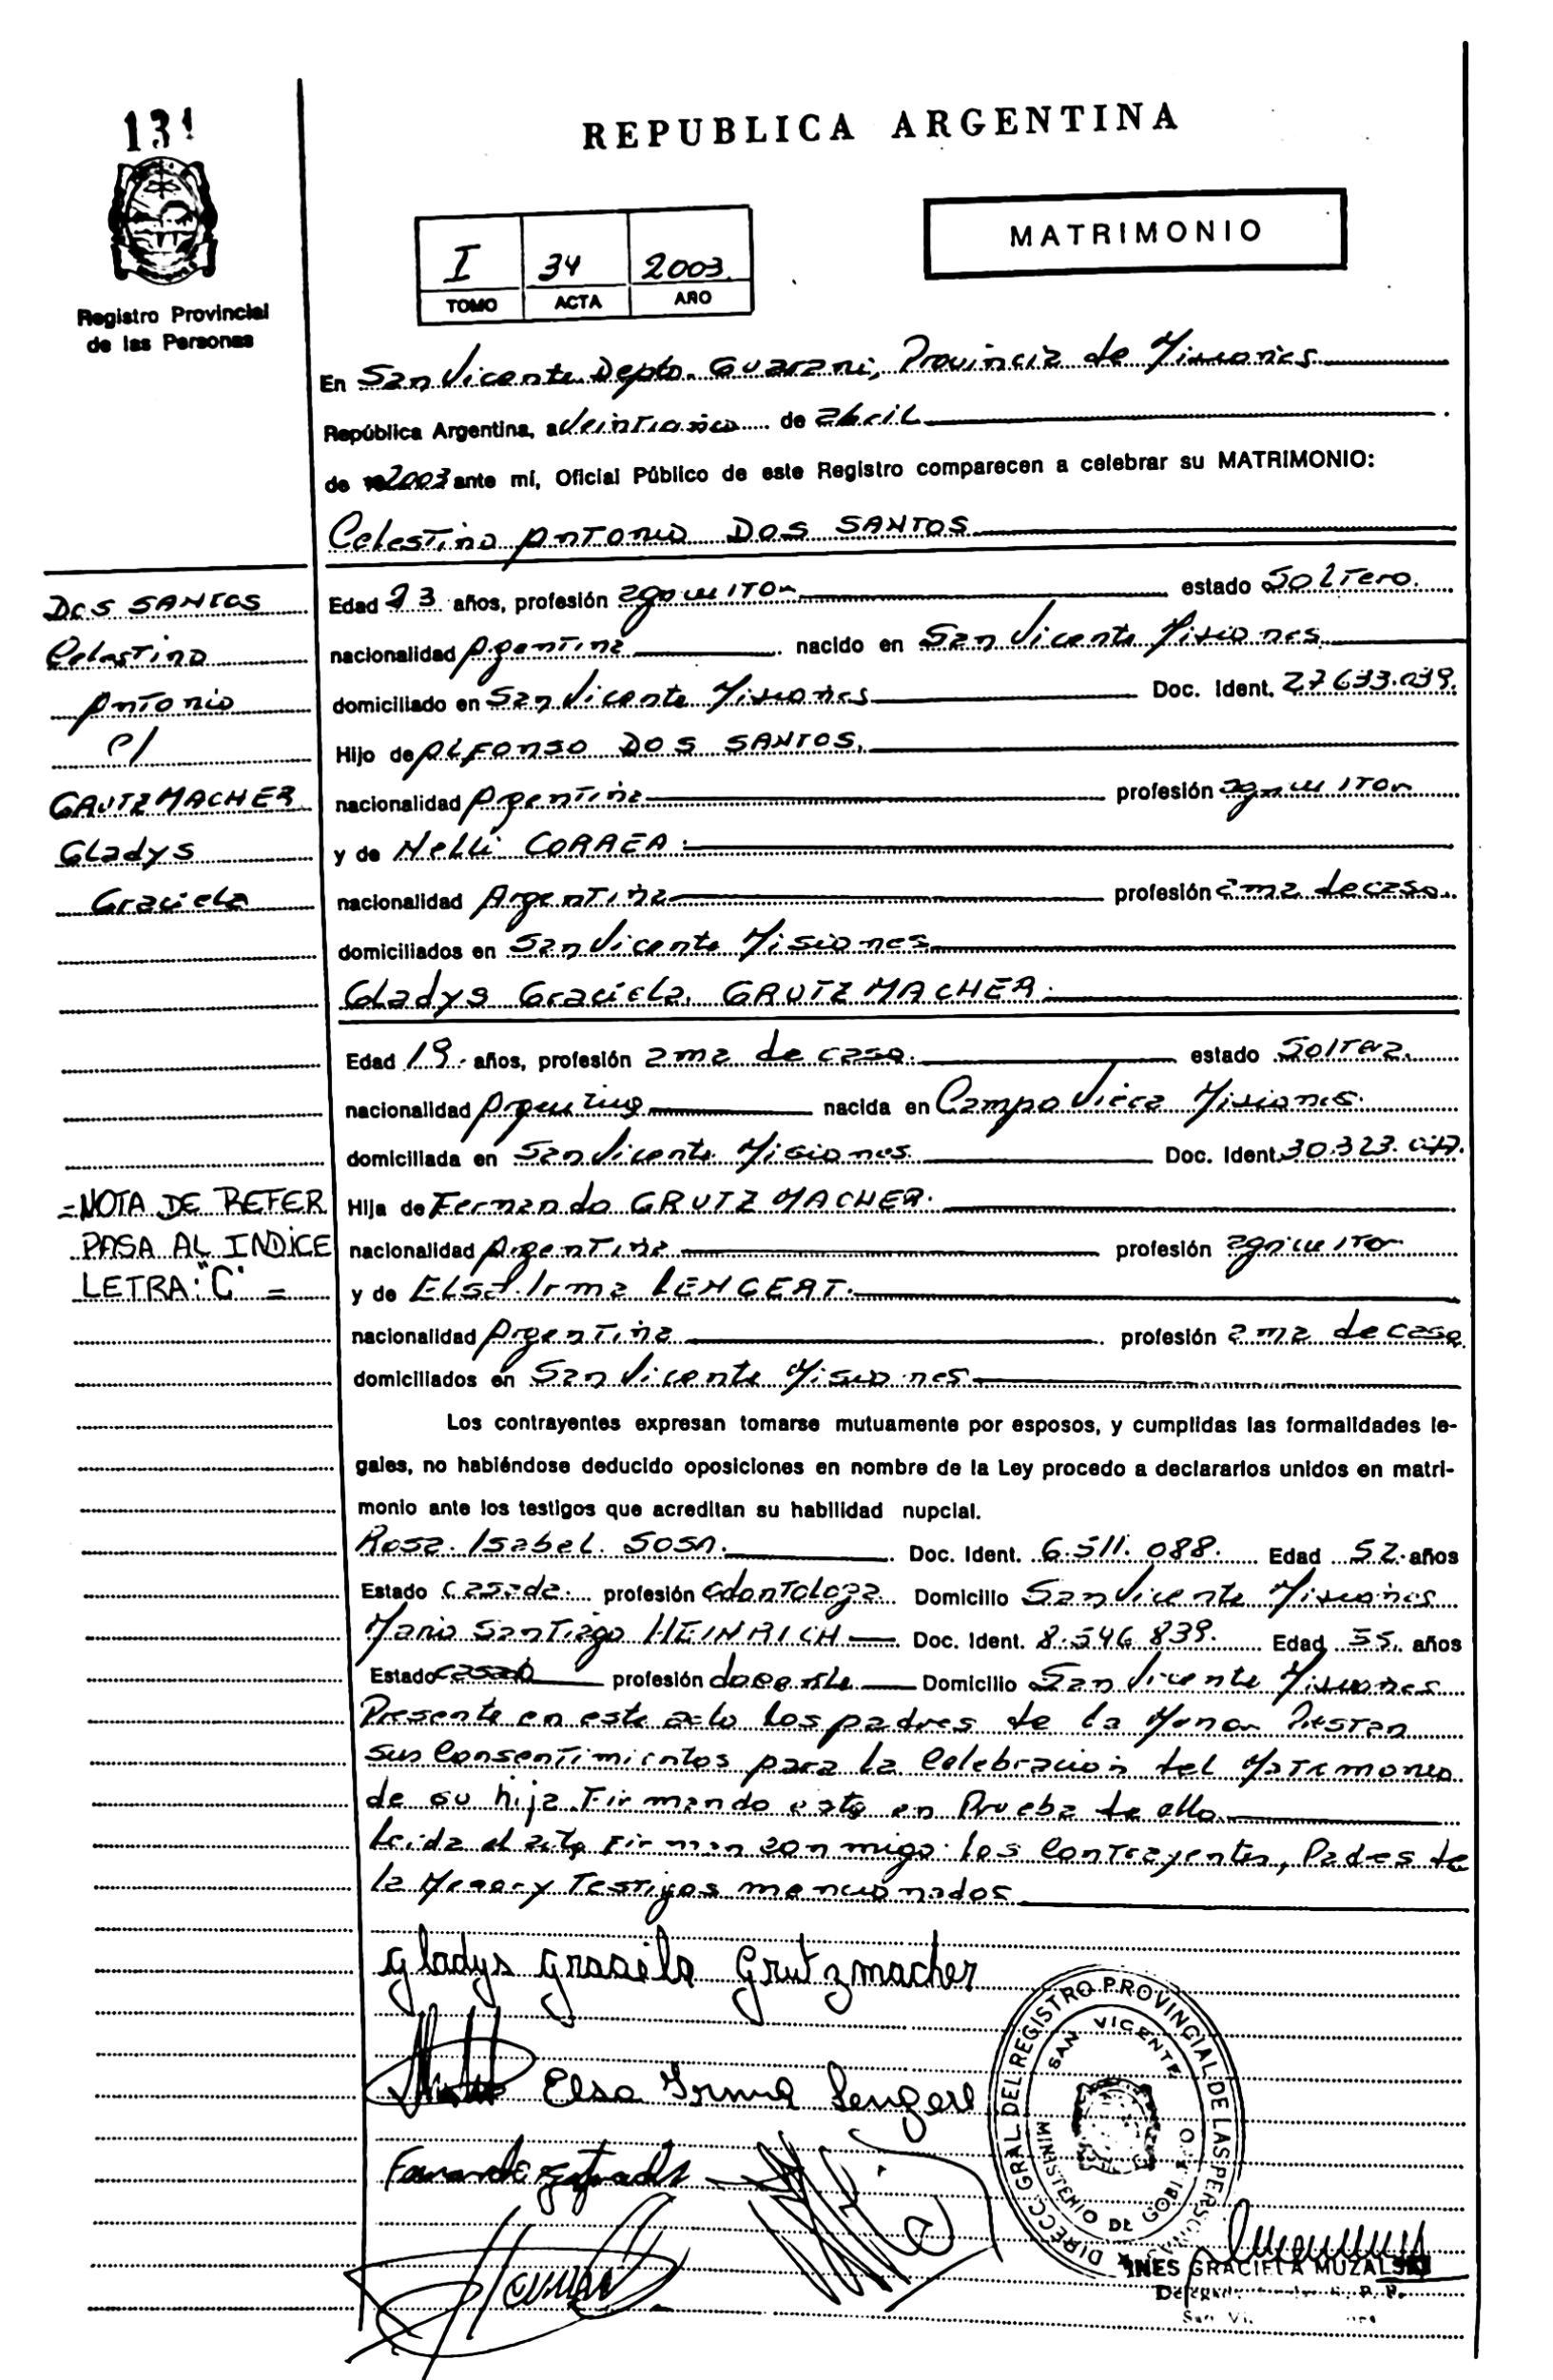 131
REPUBLICA ARGENTINA
MATRIMONIO
I 34 2003
TOMO ACTA AÑO
Registro Provincial
de las Personas
En San Vicente Depto. Guarani, Provincia de Misiones
República Argentina, a Veinticinco de abril
de 2003 ante mí, Oficial Público de este Registro comparecen a celebrar su MATRIMONIO:
Celestino Antonio DOS SANTOS
DOS SANTOS
Celestino
Antonio
c/
GRUTZMACHER
Gladys
Graciela
Edad 23 años, profesión agricultor estado Soltero.
nacionalidad Argentina nacido en San Vicente Misiones
domiciliado en San Vicente Misiones Doc. Ident. 27.633.039.
Hijo de ALFONSO DOS SANTOS.
nacionalidad Argentina profesión agricultor
y de Nelli CORREA.
nacionalidad Argentina profesión ama de casa
domiciliados en San Vicente Misiones
Gladys Graciela GRUTZMACHER.
Edad 19 años, profesión ama de casa. estado Soltera.
nacionalidad Argentina nacida en Campo Viera Misiones.
domiciliada en San Vicente Misiones Doc. Ident. 30.323.
=NOTA DE REFER
PASA AL INDICE
LETRA: "C" =
Hija de Fernando GRUTZMACHER.
nacionalidad Argentina profesión agricultor
y de Elsa Irma LENGERT.
nacionalidad Argentina profesión ama de casa
domiciliados en San Vicente Misiones
Los contrayentes expresan tomarse mutuamente por esposos, y cumplidas las formalidades le-
gales, no habiéndose deducido oposiciones en nombre de la Ley procedo a declararlos unidos en matri-
monio ante los testigos que acreditan su habilidad nupcial.
Rosa Isabel SOSA. Doc. Ident. 6.511.088. Edad 52 años
Estado Casada. profesión odontologa Domicilio San Vicente Misiones
Mario Santiago HEINRICH Doc. Ident. 8.546.839. Edad 55 años
Estado casado profesión docente Domicilio San Vicente Misiones
Presente en este acto los padres de la Menor Prestan
sus Consentimientos para la Celebracion del Matrimonio
de su hija Firmando este en Prueba de ello
Leida el acta Firman conmigo los Contrayentes, Padres de
la Menor y Testigos mencionados
Gladys Graciela Grutzmacher
Elsa Irma Lengert
DIRECC. GRAL. DEL REGISTRO PROVINCIAL DE LAS PERSONAS
SAN VICENTE
MINISTERIO DE GOBIERNO
INES GRACIELA MUZALSKI